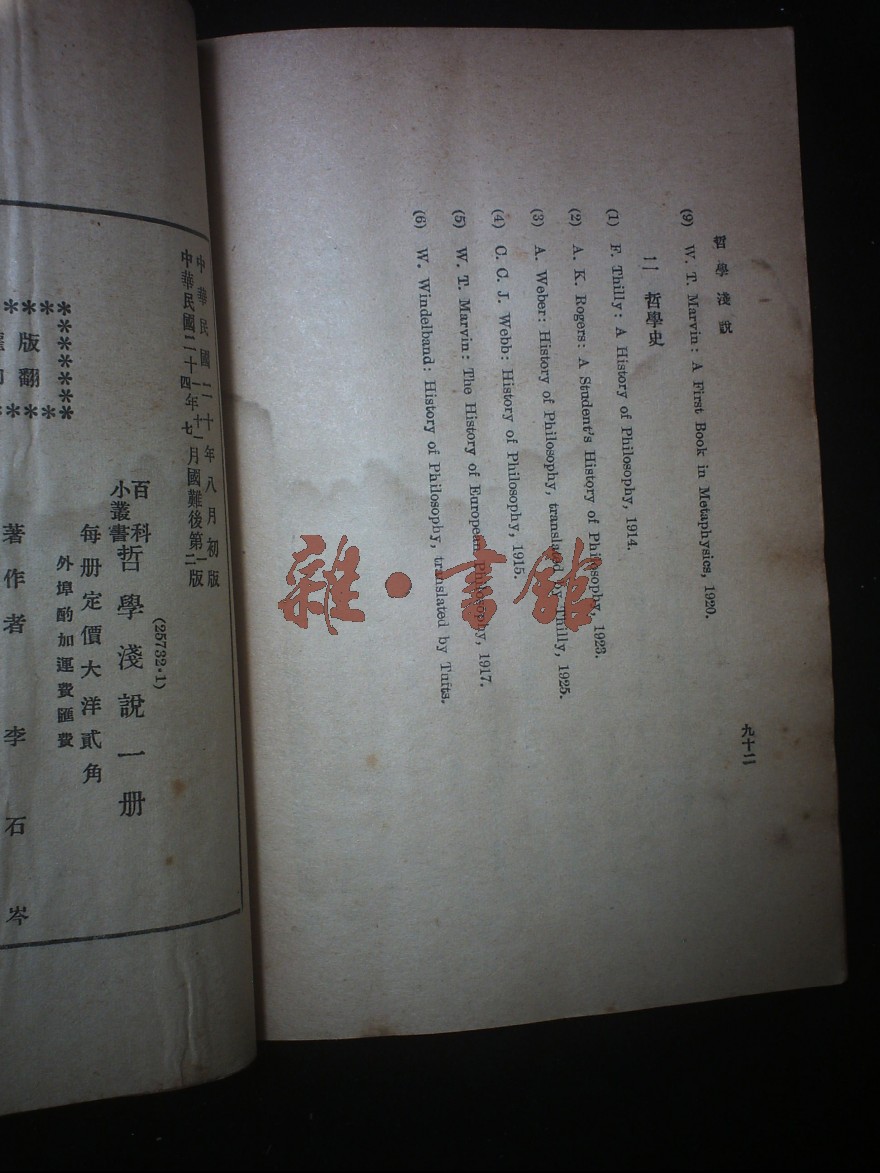 哲學淺說
(9) W. T. Marvin: A First Book in Metaphysics, 1920.
二 哲學史
(1) F. Thilly: A History of Philosophy, 1914.
(2) A. K. Rogers: A Student's History of Philosophy, 1923.
(3) A. Weber: History of Philosophy, translated by Thilly, 1925.
(4) C. C. J. Webb: History of Philosophy, 1915.
(5) W. T. Marvin: The History of European Philosophy, 1917.
(6) W. Windelband: History of Philosophy, translated by Tufts.
九十二
雜·書館
中華民國二十年八月初版
中華民國二十四年七月國難後第二版
(25732·1)
百科小叢書 哲學淺說一册
每册定價大洋貳角
外埠酌加運費匯費
版翻
著作者 李石岑